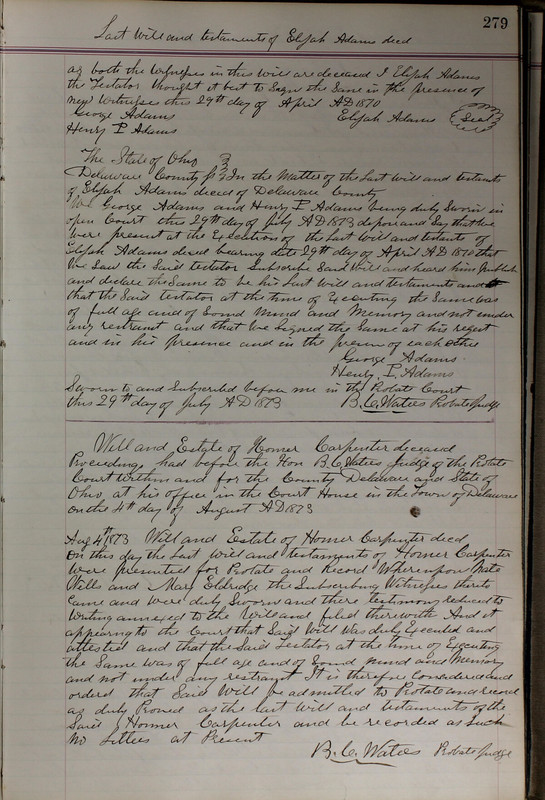 279
Last Will and testaments of Elijah Adams decd
as both the Witnesses in this Will are deceased I Elijah Adams
the Testator thought it best to Sign the Same in the presence of
new Witnesses this 29th day of April AD 1870
George Adams Elijah Adams Seal
Henry P Adams
The State of Ohio
Delaware County ss In the Matter of the Last Will and testants
of Elijah Adams deced of Delaware County
We George Adams and Henry P Adams being duly Sworn in
open Court this 29th day of July AD 1873 depose and Say that We
Were present at the Execution of the Last Will and testants of
Elijah Adams decsed bearing date 29th day of April AD 1870 that
We Saw the Said testator Subscribe Said Will and heard him publish
and declare the Same to be his Last Will and testaments and
that the Said testator at the time of Executing the Same was
of full age and of Sound Mind and Memory and not under
any restraint and that We Signed the Same at his reqest
and in his presence and in the presen of each other
George Adams
Henry P. Adams
Sworn to and Subscribed before me in the Probate Court
this 29th day of July AD 1873 B. C. Waters Probate Judge
Will and Estate of Homer Carpenter deceased
Proceedings had before the Hon B. C. Waters Judge of the Probate
Court Within and for the County Delaware and State of
Ohio at his office in the Court House in the Town of Delaware
on the 4th day of August AD 1873
Aug 4th 1873 Will and Estate of Homer Carpenter decd
On this day the Last Will and testaments of Homer Carpenter
Were presented for Probate and Record Whereupon Nate
Wells and Mary Eldredge the Subscribing Witnesses thereto
Came and Were duly Sworn and there testimony reduced to
Writing annexed to the Will and filed therewith And it
appearing to the Court that Said Will Was duly Executed and
attested and that the Said Testator at the time of Executing
the Same Was of full age and of Sound Mind and Memory
and not under any restraint It is therefore Considered and
ordered that Said Will be admitted to Probate and record
as duly Proved as the last Will and testaments of the
Said Homer Carpenter and be recorded as Such
No Letters at Present
B. C. Waters Probate Judge